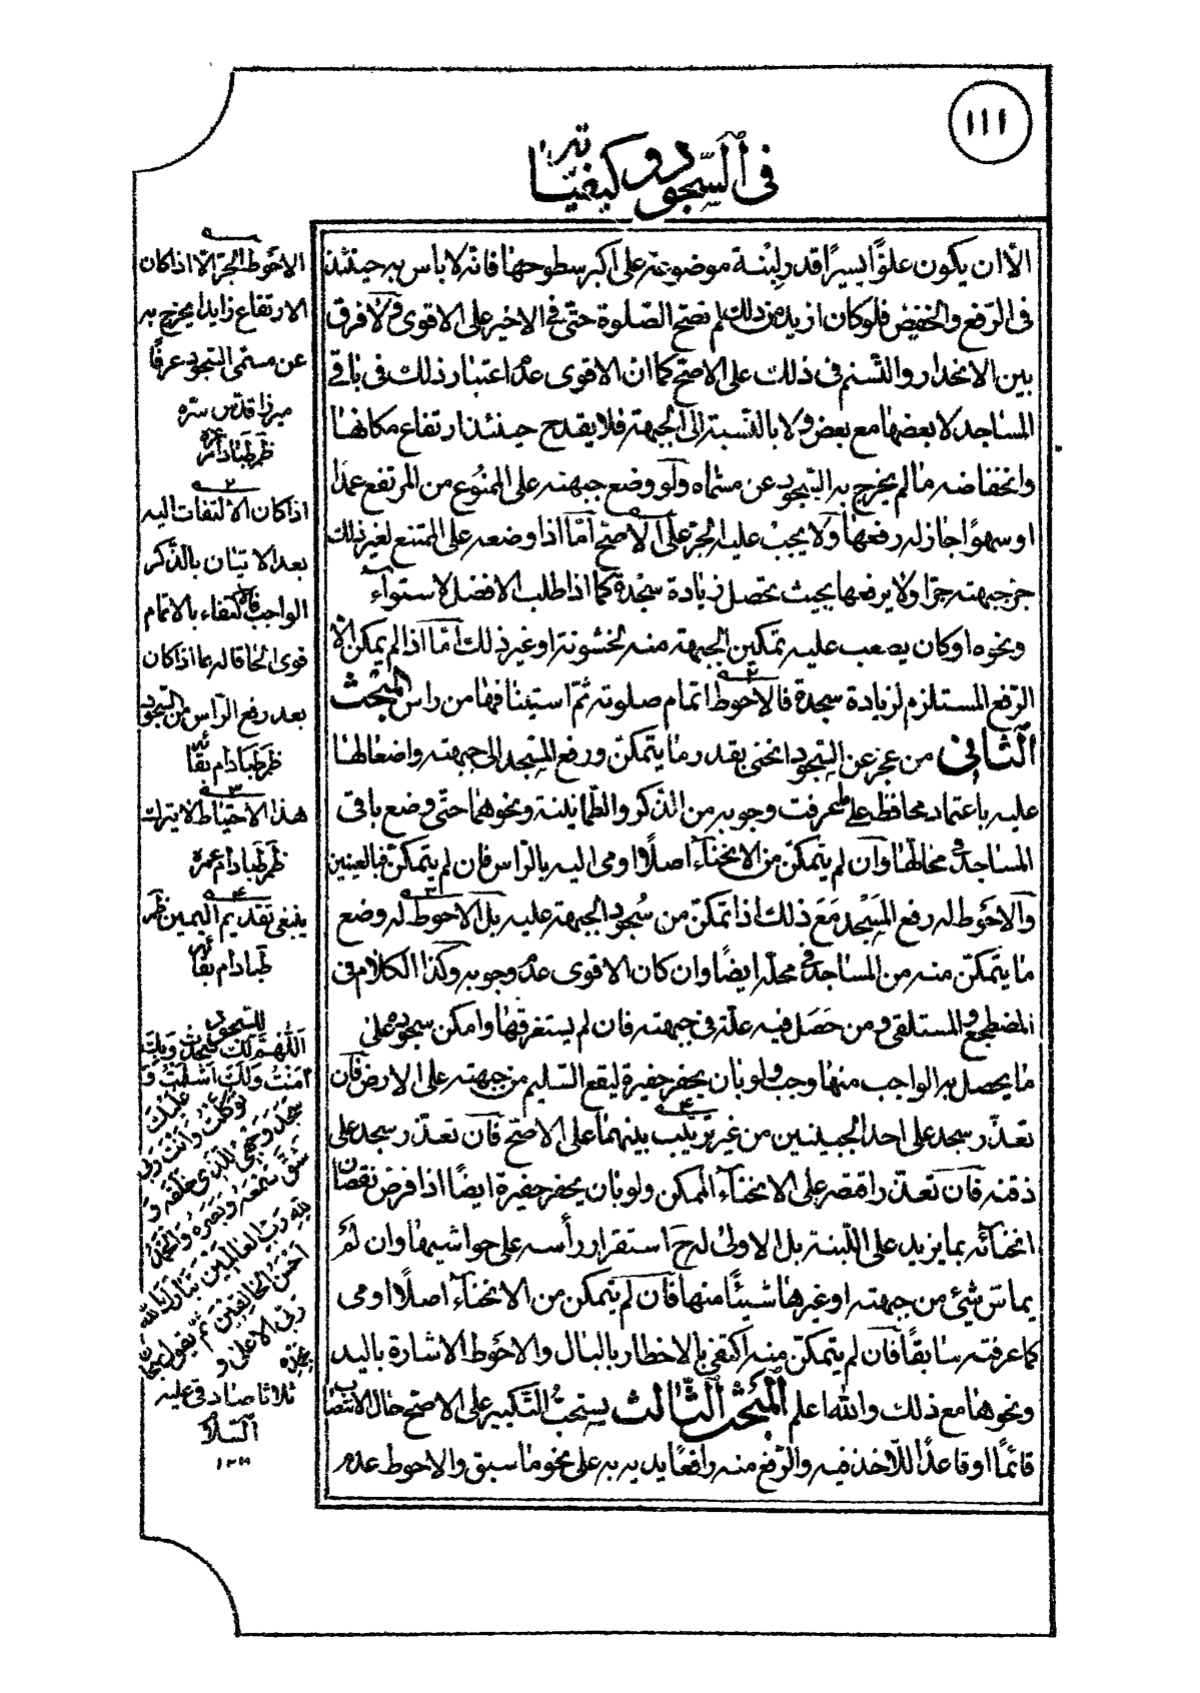 ١١١
في السجود وكيفياته
الا ان يكون علوًّا يسيرًا قدر لبنة موضوعة على اكبر سطوحها فانه لا باس به حينئذ
في الرفع والخفض فلو كان ازيد من ذلك لم تصح الصلوة حتى في الاخير على الاقوى ولا فرق
بين الانحدار والتسنم في ذلك على الاصح كما ان الاقوى عدم اعتبار ذلك في باقي
المساجد لا بعضها مع بعض ولا بالنسبة الى الجبهة فلا يقدح حينئذ ارتفاع مكانها
وانخفاضه ما لم يخرج به السجود عن مسماه ولو وضع جبهته على الممنوع من المرتفع عمدًا
او سهوًا جاز له رفعها ولا يجب عليه الجر على الاصح امّا اذا وضعه على الممتنع لغير ذلك
جر جبهته جرًّا ولا يرفعها بحيث تحصل زيادة سجدة كما اذا طلب الافضل لاستواء
ونحوه او كان يصعب عليه تمكين الجبهة منه لخشونة او غير ذلك امّا اذا لم يمكن الا
الرفع المستلزم لزيادة سجدة فالاحوط اتمام صلوته ثم استينافها من راس المبحث
الثاني من عجز عن السجود انحنى بقدر ما يتمكن ورفع المسجد الى جبهته واضعا لها
عليه باعتماد محافظ على ما عرفت وجوبه من الذكر والطمانينة ونحوهما حتى وضع باقي
المساجد في محالها وان لم يتمكن من الانحناء اصلًا اومى اليه بالراس فان لم يتمكن فبالعينين
والاحوط له رفع المسجد مع ذلك اذا تمكن من سجود الجبهة عليه بل الاحوط له وضع
ما يتمكن منه من المساجد في محله ايضًا وان كان الاقوى عدم وجوبه وكذا الكلام في
المضطجع والمستلقي ومن حصل فيه علة في جبهته فان لم يستغرقها وامكن سجوده على
ما يحصل به الواجب منها وجب ولو بان يحفر حفيرة ليقع السليم من جبهته على الارض فان
تعذر سجد على احد الجبينين من غير ترتيب بينهما على الاصح فان تعذر سجد على
ذقنه فان تعذر اقتصر على الانحناء الممكن ولو بان يحفر حفيرة ايضًا اذا فرض نقصان
انحنائه بما يزيد على اللبنة بل الاولى له ح استقرار رأسه على حواشيها وان لم
يماس شيء من جبهته او غيرها شيئًا منها فان لم يتمكن من الانحناء اصلًا اومى
كما عرفته سابقًا فان لم يتمكن منه اكتفى بالاخطار بالبال والاحوط الاشارة باليد
ونحوها مع ذلك والله اعلم المبحث الثالث يستحب التكبير على الاصح حال الانتصاب
قائمًا او قاعدًا للاخذ فيه والرفع منه رافعًا يديه به على نحو ما سبق والاحوط عدم
١
الاحوط الجر الا اذا كان
الارتفاع زايدا يخرج به
عن مسمى السجود عرفًا
ميرزا قدس سره
ظم طبا دام عمره
٢
اذا كان الالتفات اليه
بعد الاتيان بالذكر
الواجب فالاكتفاء بالاتمام
قوى الحاقا له بما اذا كان
بعد رفع الراس من السجود
ظم طبا دام بقاه
٣
هذا الاحتياط لا يترك
ظم طبا دام عمره
٤
ينبغي تقديم اليمين ظم
طبا دام بقاه
للسجود
اللهم لك سجدت وبك
امنت ولك اسلمت و
عليك
توكلت وانت ربي
سجد وجهي للذي خلقه و
شق سمعه وبصره والحمد
لله رب العالمين تبارك الله
احسن الخالقين ثم يقول سبحان
ربي الاعلى و
بحمده
ثلاثا صادق عليه
السلام